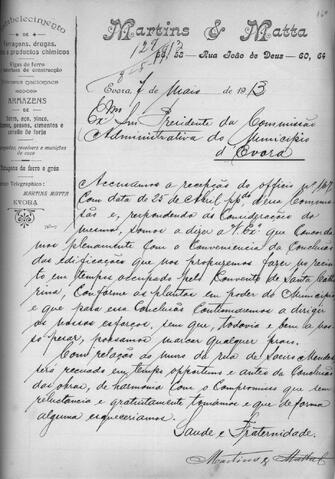 Estabelecimento
DE
Ferragens, drogas,
e productos chimicos
Vigas de ferro
ARMAZENS
DE
Ferro, aço, zinco,
carvão de forja
Telegraphico:
MARTINS MATTA
EVORA
Martins & Matta
58, — Rua João de Deus — 60, 64
Evora, 7 de Maio de 1913
Exmo
Sr. Presidente da Commissão
Administrativa do Municipio
d'Evora
Accusamos a recepção do officio nº 167,
Com data de 25 de Abril ppdo d'essa Commis-
são e, respondendo ás Considerações do
mesmo, somos a dizer a V. Exª que Concorda-
mos plenamente com a Conveniencia da Conclusão
das edificações que nos propuzemos fazer no recin-
to em tempos occupado pelo Convento de Santa Catha-
rina, Conforme as plantas em poder do Municipio
e que para essa Conclusão Continuaremos a dirigir
os nossos esforços, sem que, todavia e bem a nos-
so pesar, possamos marcar qualquer praso.
Com relação ao muro da rua de Soeiro Mendes
será recuado em tempo opportuno e antes da Conclusão
das obras, de harmonia com o Compromisso que sem
reluctancia e gratuitamente tomámos e que de forma
alguma esqueceriamos.
Saude e Fraternidade.
Martins & Matta